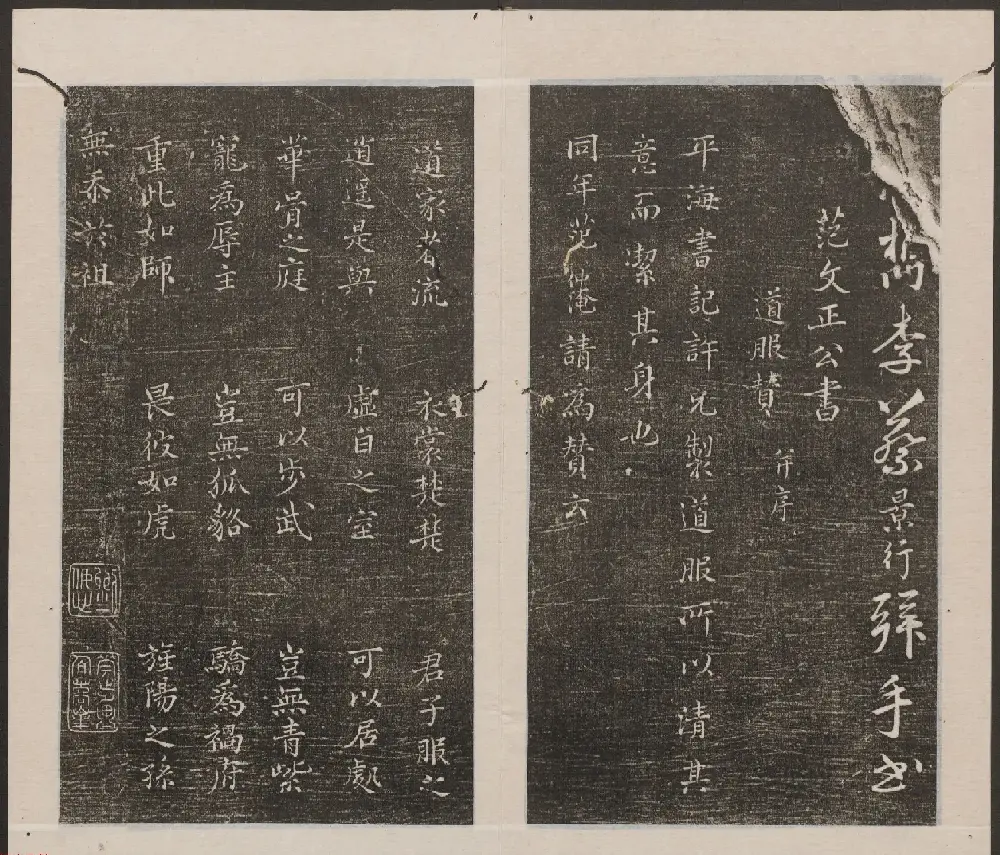 檇李蔡景行拜手書
范文正公書
道服賛 并序
平海書記許兄製道服所以清其
意而潔其身也
同年范仲淹請為賛云
道家者流 衣裳楚楚 君子服之
逍遥是與 虛白之室 可以居處
華胥之庭 可以步武 豈無青紫
寵為辱主 豈無狐貉 驕為禍府
重此如師 畏彼如虎 旌陽之孫
無忝於祖